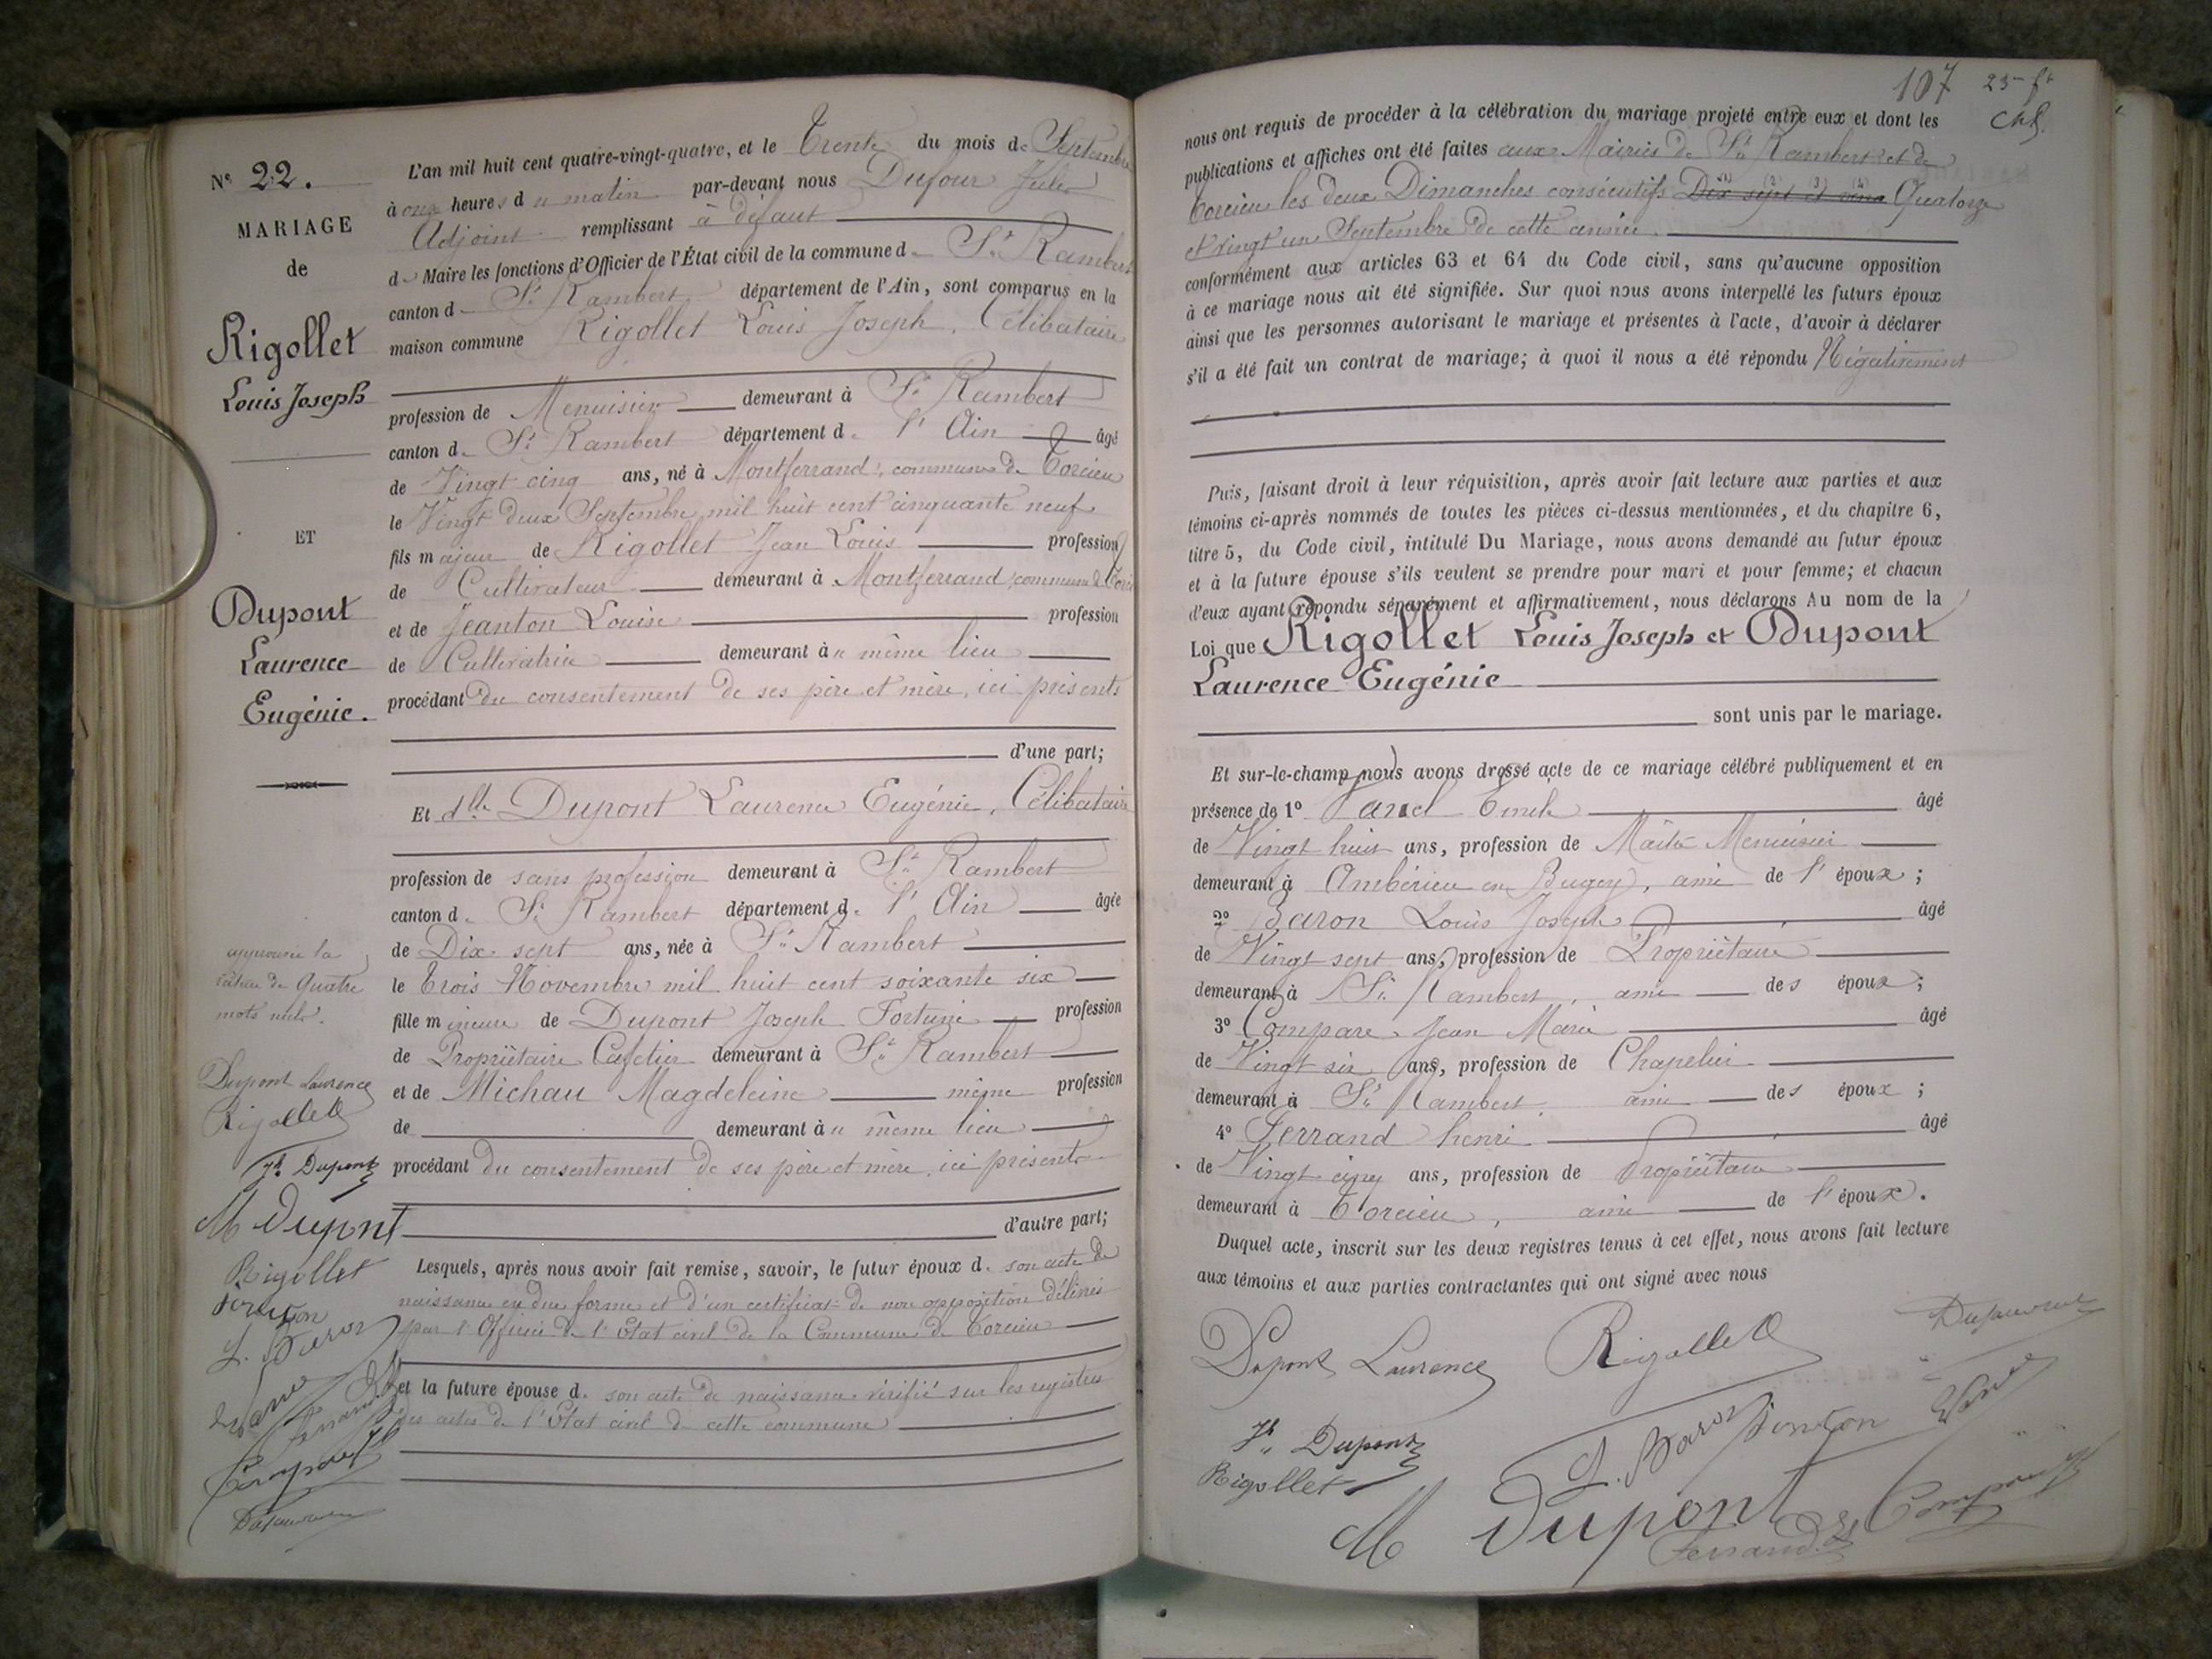 N° 22.
MARIAGE
de
Rigollet
Louis Joseph
ET
Dupont
Laurence
Eugénie.
L'an mil huit cent quatre-vingt-quatre, et le Trente du mois de Septembre
à onze heures du matin par-devant nous Dufour Jules
Adjoint remplissant à défaut
de Maire les fonctions d'Officier de l'État civil de la commune de St Rambert
canton de St Rambert département de l'Ain, sont comparus en la
maison commune Rigollet Louis Joseph, Célibataire
profession de Menuisier demeurant à St Rambert
canton de St Rambert département de l'Ain âgé
de Vingt cinq ans, né à Montferrand, commune de Torcieu
le Vingt deux Septembre mil huit cent cinquante neuf
fils majeur de Rigollet Jean Louis profession
de Cultivateur demeurant à Montferrand, commune de Torcieu
et de Jeanton Louise profession
de Cultivatrice demeurant au même lieu
procédant du consentement de ses père et mère, ici présents
d'une part;
Et dlle Dupont Laurence Eugénie, Célibataire
profession de sans profession demeurant à St Rambert
canton de St Rambert département de l'Ain âgée
de Dix sept ans, née à St Rambert
le Trois Novembre mil huit cent soixante six
fille mineure de Dupont Joseph Fortuné profession
de Propriétaire Cafetier demeurant à St Rambert
et de Michau Magdeleine même profession
de demeurant au même lieu
procédant du consentement de ses père et mère, ici présents
d'autre part;
Lesquels, après nous avoir fait remise, savoir, le futur époux de son acte de
naissance en due forme et d'un certificat de non opposition délivrés
par l'Officier de l'Etat civil de la Commune de Torcieu
et la future épouse de son acte de naissance vérifié sur les registres
des actes de l'Etat civil de cette commune
approuvé la
rature de Quatre
mots nuls.
Dupont Laurence
Rigollet
Jh Dupont
M Dupont
Rigollet
L. Baron
107
23
nous ont requis de procéder à la célébration du mariage projeté entre eux et dont les
publications et affiches ont été faites aux Mairies de St Rambert et de
Torcieu les deux Dimanches consécutifs Dix sept et vingt Quatorze
et vingt un Septembre de cette année.
conformément aux articles 63 et 64 du Code civil, sans qu'aucune opposition
à ce mariage nous ait été signifiée. Sur quoi nous avons interpellé les futurs époux
ainsi que les personnes autorisant le mariage et présentes à l'acte, d'avoir à déclarer
s'il a été fait un contrat de mariage; à quoi il nous a été répondu Négativement
Puis, faisant droit à leur réquisition, après avoir fait lecture aux parties et aux
témoins ci-après nommés de toutes les pièces ci-dessus mentionnées, et du chapitre 6,
titre 5, du Code civil, intitulé Du Mariage, nous avons demandé au futur époux
et à la future épouse s'ils veulent se prendre pour mari et pour femme; et chacun
d'eux ayant répondu séparément et affirmativement, nous déclarons Au nom de la
Loi que Rigollet Louis Joseph et Dupont
Laurence Eugénie
sont unis par le mariage.
Et sur-le-champ nous avons dressé acte de ce mariage célébré publiquement et en
présence de 1° Emile âgé
de Vingt huit ans, profession de Maître Menuisier
demeurant à Ambérieu en Bugey, ami de l'époux;
2° Baron Louis Joseph âgé
de Vingt sept ans, profession de Propriétaire
demeurant à St Rambert, ami des époux;
3° Compare Jean Marie âgé
de Vingt six ans, profession de Chapelier
demeurant à St Rambert, ami des époux;
4° Ferrand henri âgé
de Vingt cinq ans, profession de Propriétaire
demeurant à Torcieu, ami de l'époux.
Duquel acte, inscrit sur les deux registres tenus à cet effet, nous avons fait lecture
aux témoins et aux parties contractantes qui ont signé avec nous
Dupont Laurence Rigollet
Jh Dupont L. Baron
Rigollet
M Dupont
Ferrand